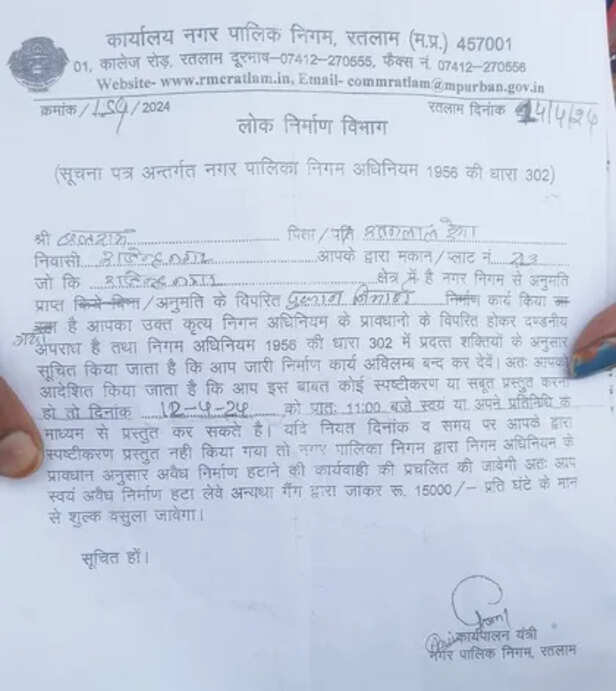 कार्यालय नगर पालिक निगम, रतलाम (म.प्र.) 457001
01, कालेज रोड़, रतलाम दूरभाष-07412-270555, फैक्स नं. 07412-270556
Website- www.rmcratlam.in, Email- commratlam@mpurban.gov.in
क्रमांक /154/2024 रतलाम दिनांक
लोक निर्माण विभाग
(सूचना पत्र अन्तर्गत नगर पालिका निगम अधिनियम 1956 की धारा 302)
श्री पिता/पति
निवासी राजेन्द्र नगर आपके द्वारा मकान/प्लाट नं. 23
जो कि राजेन्द्र नगर क्षेत्र में है नगर निगम से अनुमति
प्राप्त किये बिना/अनुमति के विपरित दुकान निर्माण निर्माण कार्य किया
गया है आपका उक्त कृत्य निगम अधिनियम के प्रावधानो के विपरित होकर दण्डनीय
अपराध है तथा निगम अधिनियम 1956 की धारा 302 में प्रदत्त शक्तियों के अनुसार
सूचित किया जाता है कि आप जारी निर्माण कार्य अविलम्ब बन्द कर देवें। अतः आपको
आदेशित किया जाता है कि आप इस बाबत कोई स्पष्टीकरण या सबूत प्रस्तुत करना
हो तो दिनांक 12-4-24 को प्रातः 11:00 बजे स्वयं या अपने प्रतिनिधि के
माध्यन से प्रस्तुत कर सकते है। यदि नियत दिनांक व समय पर आपके द्वारा
स्पष्टीकरण प्रस्तुत नही किया गया तो नगर पालिका निगम द्वारा निगम अधिनियम के
प्रावधान अनुसार अवैध निर्माण हटाने की कार्यवाही की प्रचलित की जावेगी अतः आप
स्वयं अवैध निर्माण हटा लेवे अन्यथा गैंग द्वारा जाकर रू. 15000/- प्रति घंटे के मान
से शुल्क वसुला जावेगा।
सूचित हों।
कार्यपालन यंत्री
नगर पालिक निगम, रतलाम